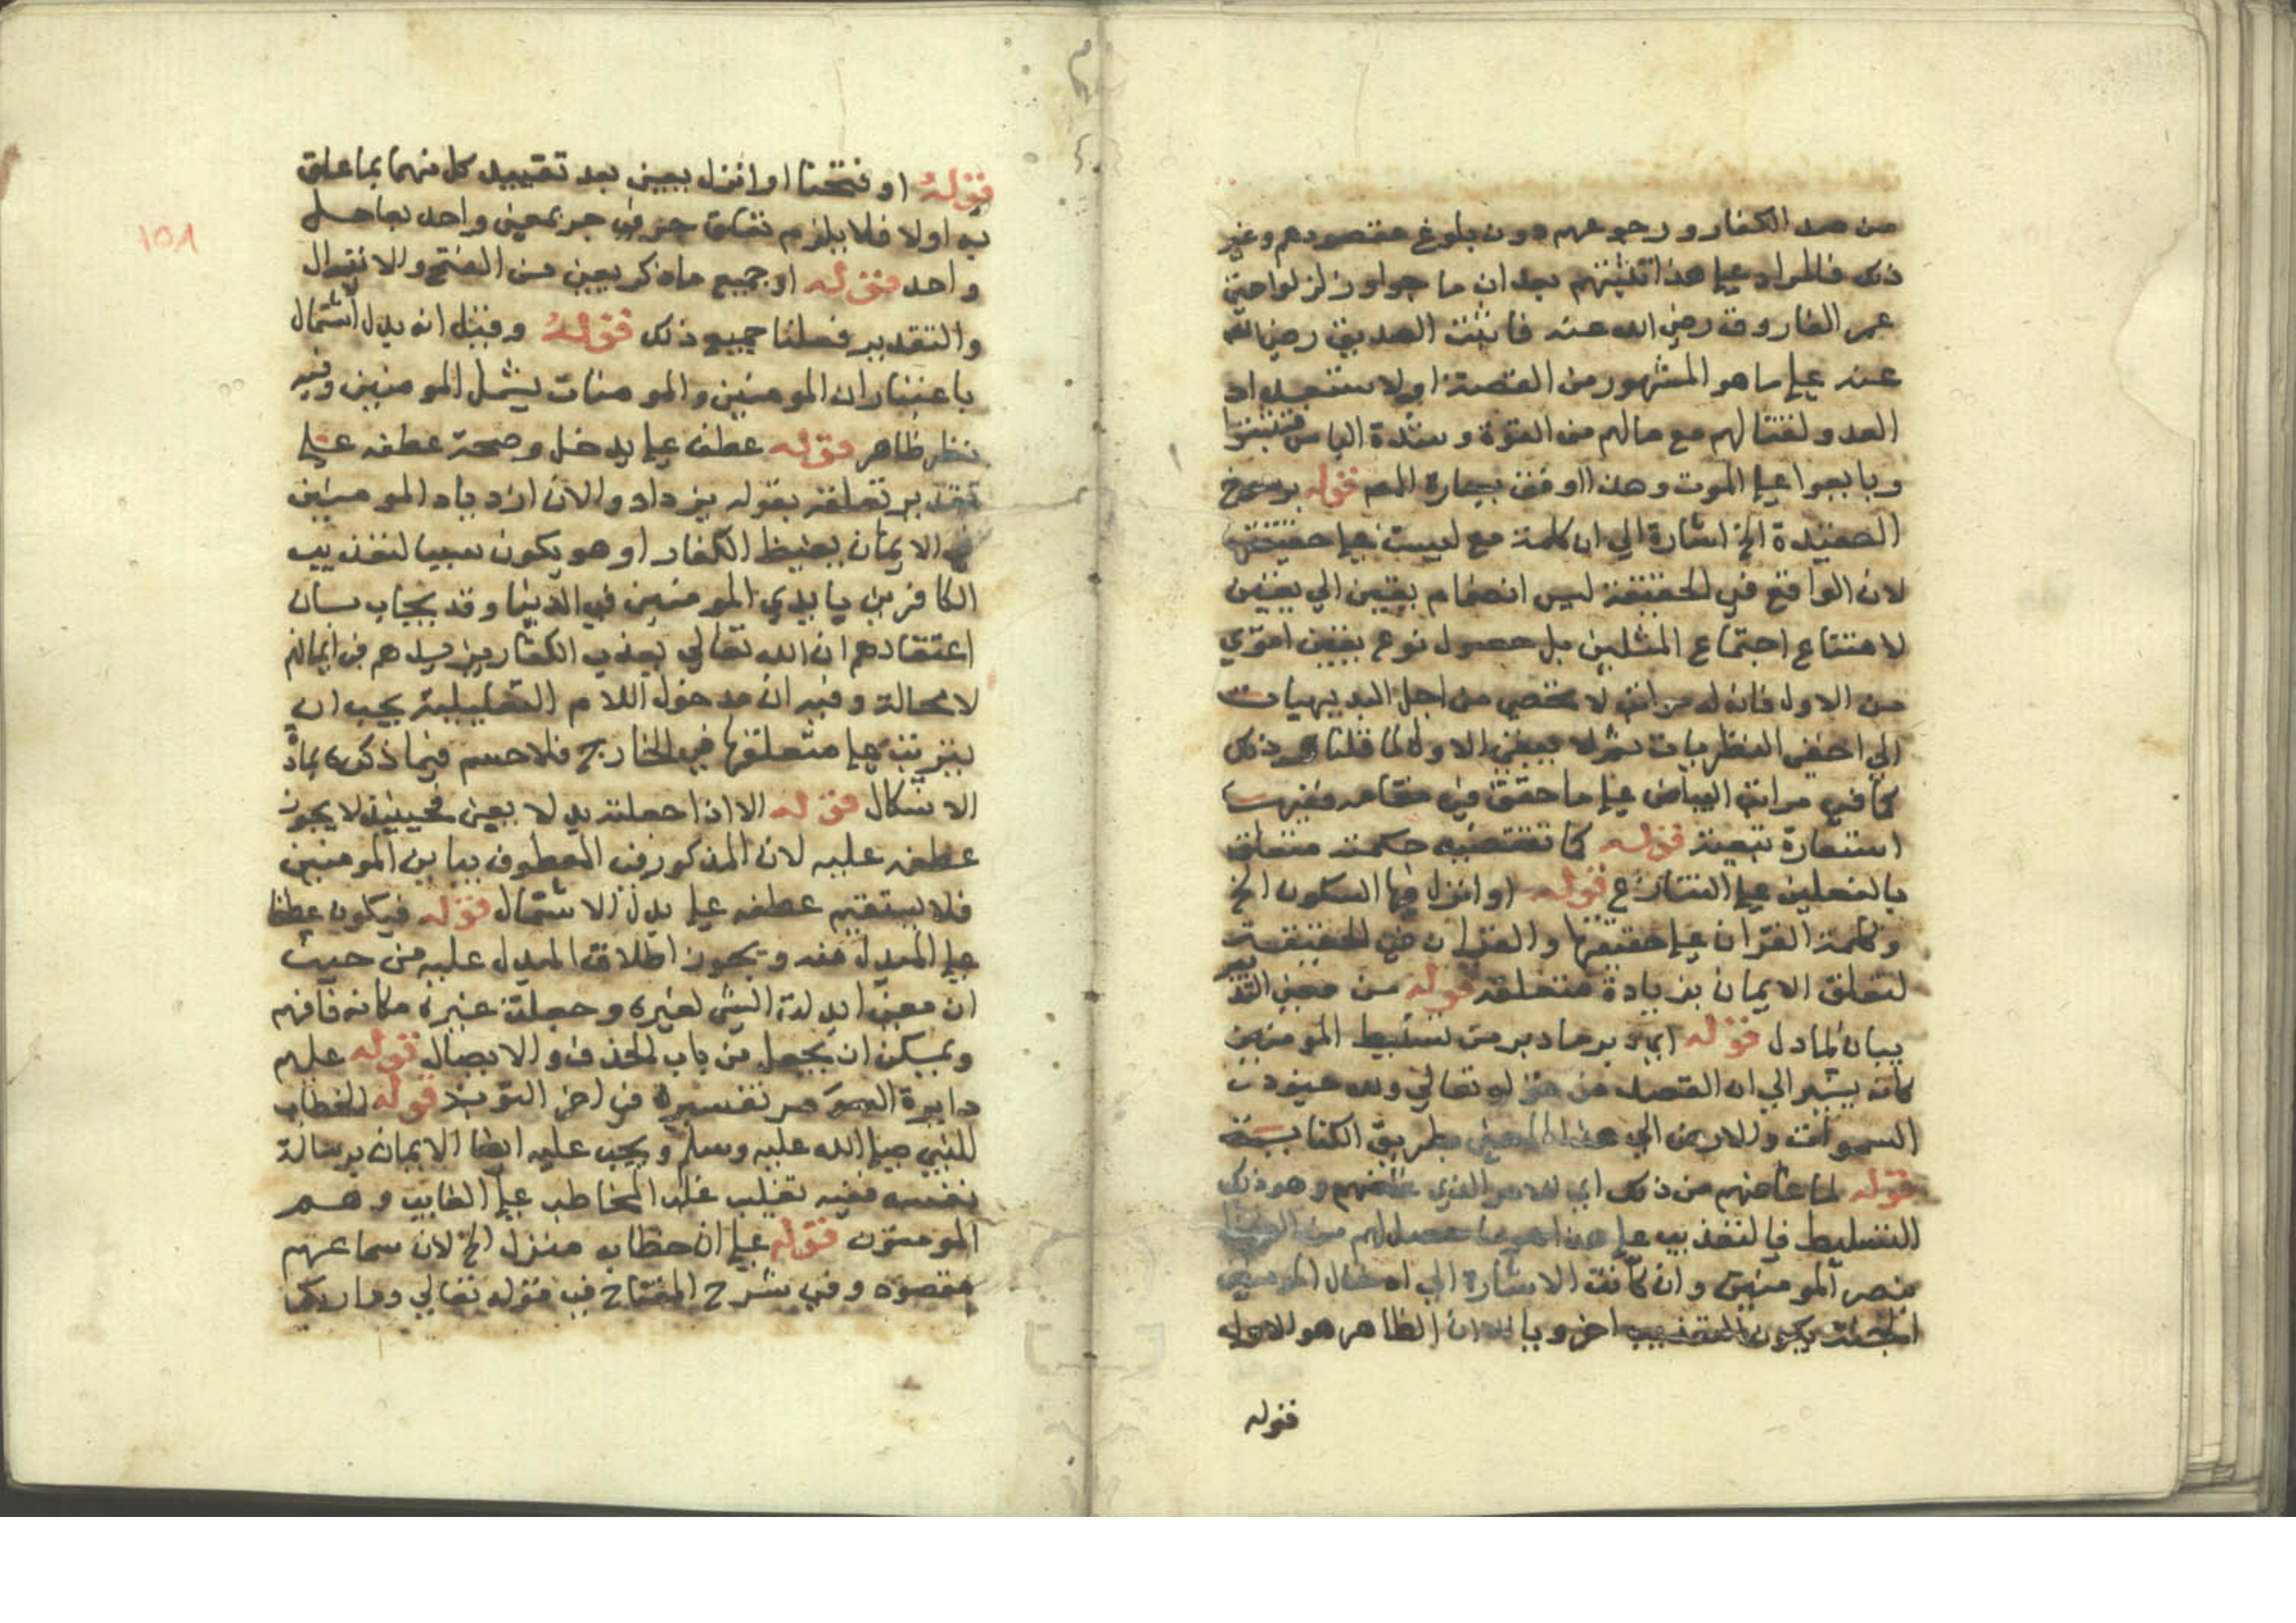 من صد الكفار ورجوعهم دون بلوغ مقصودهم وغير
ذلك فالمراد على هذا تثبتهم بعد ان ماجوا وزلزلوا حتى
عمر الفاروق رضي الله عنه فاثبت الصديق رضي الله
عنه على ما هو المشهور من القصة او لاستعداد
العدو لقتالهم مع مالهم من القوة وشدة الباس فثبتوا
وبايعوا على الموت وهذا اوفق بعبارة المص قوله برسوخ
العقيدة الخ اشارة الي ان كلمة مع ليست على حقيقتها
لان الواقع في الحقيقة ليس انضمام يقين الي يقين
لامتناع اجتماع المثلين بل حصول نوع يقين اقوي
من الاول فان له مراتب لا تحصي من اجل البديهيات
الي اخفي النظريات ثم لا ينفي الاول لما قلنا ذلك
كما في مراتب البياض على ما حقق في مقامه ففيها
استعارة تبعية قوله كما تقتضيه حكمته متعلق
بالفعلين على التنازع قوله او انزل فيها السكون الخ
وكلمة القران على حقيقتها والقران في الحقيقة
لتعلق الايمان بزيادة متعلقه قوله من معني التد
بيان لما دل قوله اي دبر ما دبر من تسليط المومنين
كانه يشير الي ان القصد من قوله تعالي ولله جنود
السموات والارض الي هذا المعني بطريق الكناية
قوله لما غاظهم من ذلك اي للامر الذي غاظهم وهو ذلك
التسليط فالتعذيب على هذا هو ما حصل لهم من
نصر المومنين وان كانت الاشارة الي ادخال المومنين
الجنة يكون التعذيب اخرويا الا ان الظاهر هو الاول
قوله
١٥٨
قوله او فتحنا او انزل يعني بعد تقييد كل منهما بما علق
به اولا فلا يلزم تعلق حرفي جر بمعني واحد بعامل
واحد قوله او جميع ما ذكر يعني من الفتح والانزال
والتقدير فعلنا جميع ذلك قوله وقيل انه بدل اشتمال
باعتبار ان المومنين والمومنات يشمل المومنين وفيه
نظر ظاهر قوله عطف على يدخل وصحة عطفه على
تقدير تعلقه بقوله يزداد والان ازدياد المومنين
في الايمان يغيظ الكفار او هو يكون سببا لتعذيب
الكافرين بايدي المومنين في الدنيا وقد يجاب بان
اعتقادهم ان الله تعالي يعذب الكفار يزيدهم في ايمانهم
لا محالة وفيه ان مدخول اللام التعليلية يجب ان
يترتب على متعلقها في الخارج فلا حسم فيما ذكره لمادة
الاشكال قوله الا اذا جعلته بدلا يعني فحينئذ لا يجوز
عطفه عليه لان المذكور في المعطوف يباين المومنين
فلا يستقيم عطفه على بدل الاشتمال قوله فيكون عطفا
على المبدل منه ويجوز اطلاق المبدل عليه من حيث
ان معني ابدلت الشي لغيره وجعلت غيره مكانه فافهم
ويمكن ان يجعل من باب الحذف والايصال قوله عليهم
دايرة السوء مر تفسيره في اخر التوبة قوله الخطاب
للنبي صلى الله عليه وسلم ويجب عليه ايضا الايمان برسالة
نفسه ففيه تغليب غلب المخاطب على الغايب وهم
المومنون قوله على ان خطابه منزل الخ لان سماعهم
مقصود وفي شرح المفتاح في قوله تعالي وما ربك